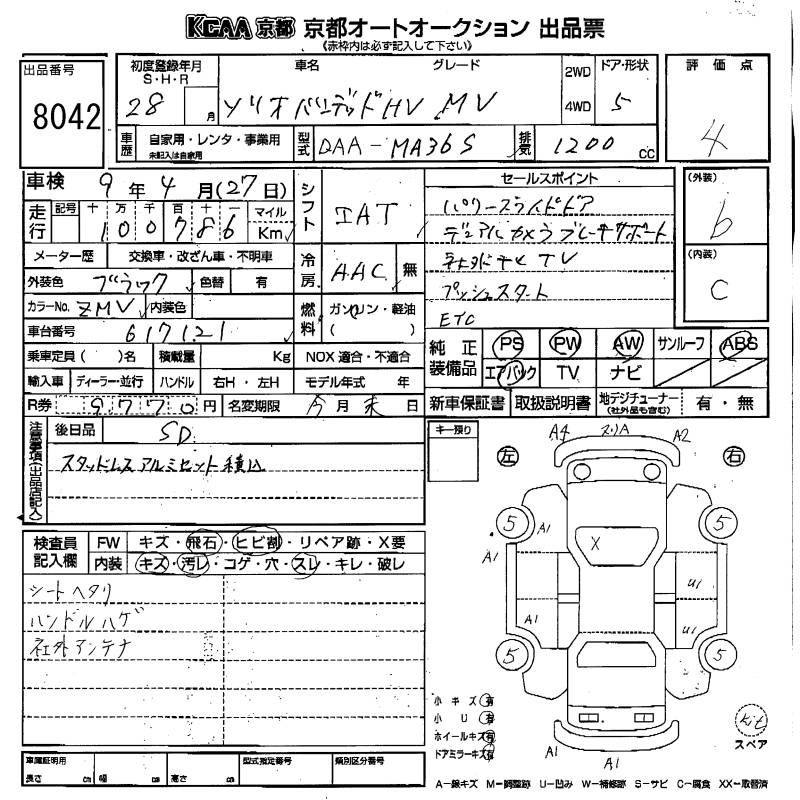 KCAA 京都 京都オートオークション 出品票
《赤枠内は必ず記入して下さい》
出品番号
8042
初度登録年月 車名 グレード 2WD ドア・形状
S・H・R
28 月 ソリオバンデッドHV MV 4WD 5
評価点
4
車歴 自家用・レンタ・事業用 型式 DAA-MA36S 排気 1200 cc
未記入は自家用
車検 9年4月(27日)
走行 記号 十 万 千 百 十 一 マイル
100786 Km
シフト IAT
メーター歴 交換車・改ざん車・不明車
冷房 AAC 無
外装色 ブラック 色替 有
カラーNo. ZMV 内装色
燃料 ガソリン・軽油
( )
車台番号 617121
乗車定員( )名 積載量 Kg NOX 適合・不適合
輸入車 ディーラー・並行 ハンドル 右H・左H モデル年式 年
R券 9770円 名変期限 今月末日
セールスポイント
パワースライドドア
デュアルカメラブレーキサポート
社外ナビTV
プッシュスタート
ETC
(外装)
b
(内装)
C
純正装備品 PS PW AW サンルーフ ABS
エアバック TV ナビ
新車保証書 取扱説明書 地デジチューナー 有・無
(社外品も含む)
注意事項(出品店記入)
後日品 SD
スタッドレスアルミセット積込
検査員記入欄 FW キズ・飛石・ヒビ割・リペア跡・X要
内装 キズ・汚レ・コゲ・穴・スレ・キレ・破レ
シートヘタリ
ハンドルハゲ
社外アンテナ
キー残り
A4 スリA A2
左 右
5 A1 5
A1 X
U1
A1 U1
5 5
小キズ 有
小U 有
ホイールキズ 有
ドアミラーキズ 有
A1
A1 A1
kit
スペア
車庫証明用 型式指定番号 類別区分番号
長さ cm 幅 cm 高さ cm
A−線キズ M−調整跡 U−凹み W−補修跡 S−サビ C−腐食 XX−取替済